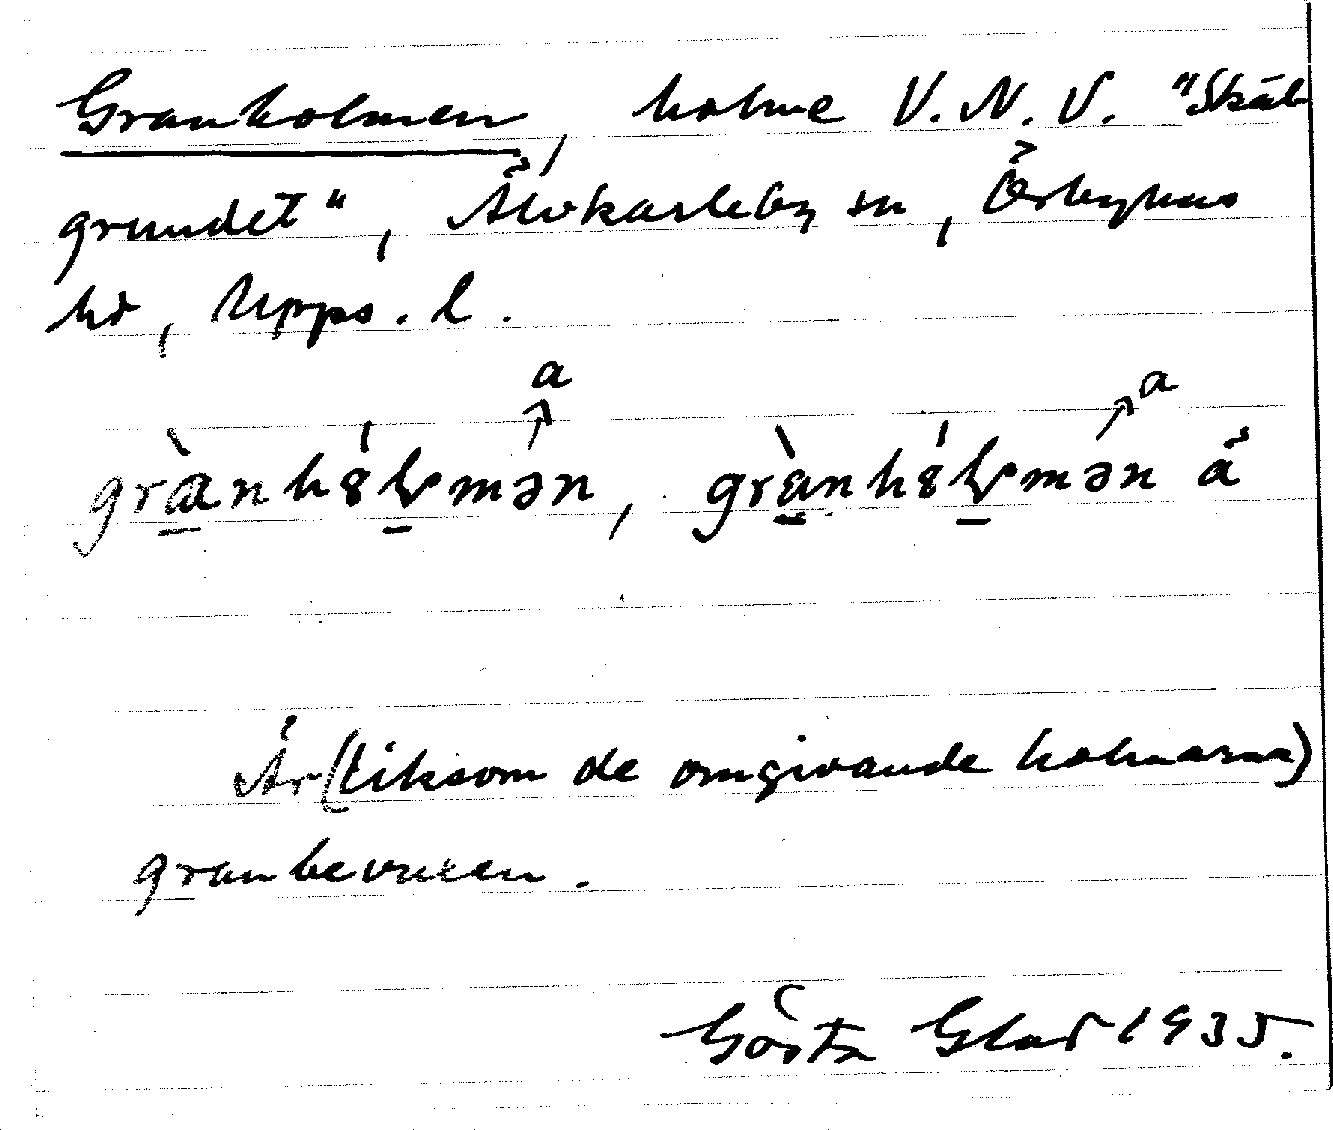 Granholmen, holme V.N.V. "Skäl-
grundet", Älvkarleby sn, Örbyhus
hd, Upps. l.
a a
grànhólmən, grànhólmən å
Är (liksom de omgivande holmarna)
granbevuxen.
Gösta Glad 1935.